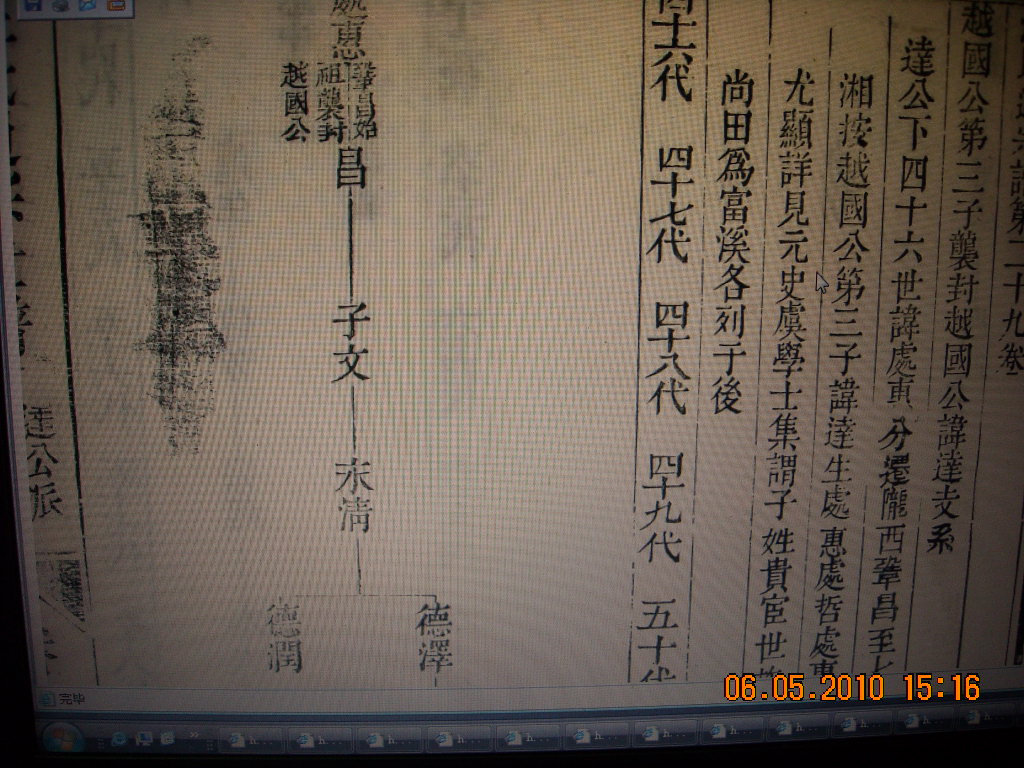 越國公第三子襲封越國公諱達支系
達公下四十六世諱處惠分遷隴西鞏昌至
湘按越國公第三子諱達生處惠處哲處
尤顯詳見元史虞學士集謂子姓貴宦世
尚田為富溪各列于後
四十六代 四十七代 四十八代 四十九代 五十代
德澤
處惠 鞏昌始祖襲封越國公 昌 子文 永清
德潤
達公派
完毕
06.05.2010 15:16